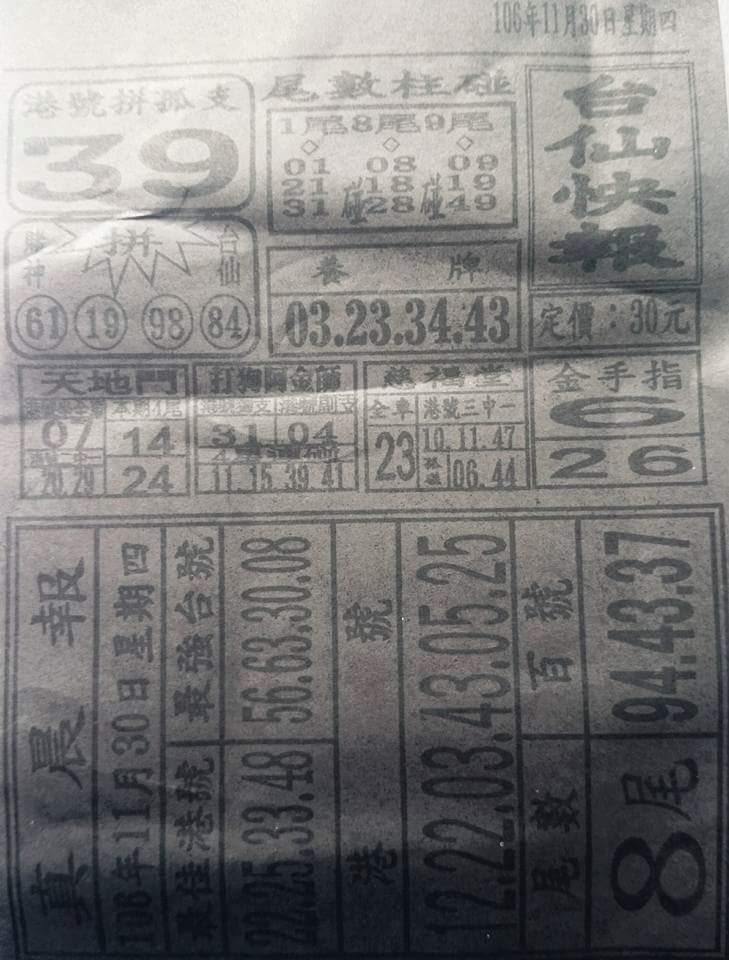 106年11月30日星期四
台仙快報
定價：30元
尾數柱碰
1尾8尾9尾
01 08 09
21 碰 18 碰 19
31 28 49
養牌
03.23.34.43
港號拼孤支
39
財神 拼 台仙
61 19 98 84
天地門
本期4尾
07
14
20.29
24
打狗 金師
31 04
11.15.39.41
慈福堂
全車 港號三中一
23
10.11.47
06.44
金手指
6
26
真晨報
106年11月30日星期四
最佳港號 最強台號
22.25.33.48 56.63.30.08
港號
12.22.03.43.05.25
尾數 百號
8尾 94.43.37